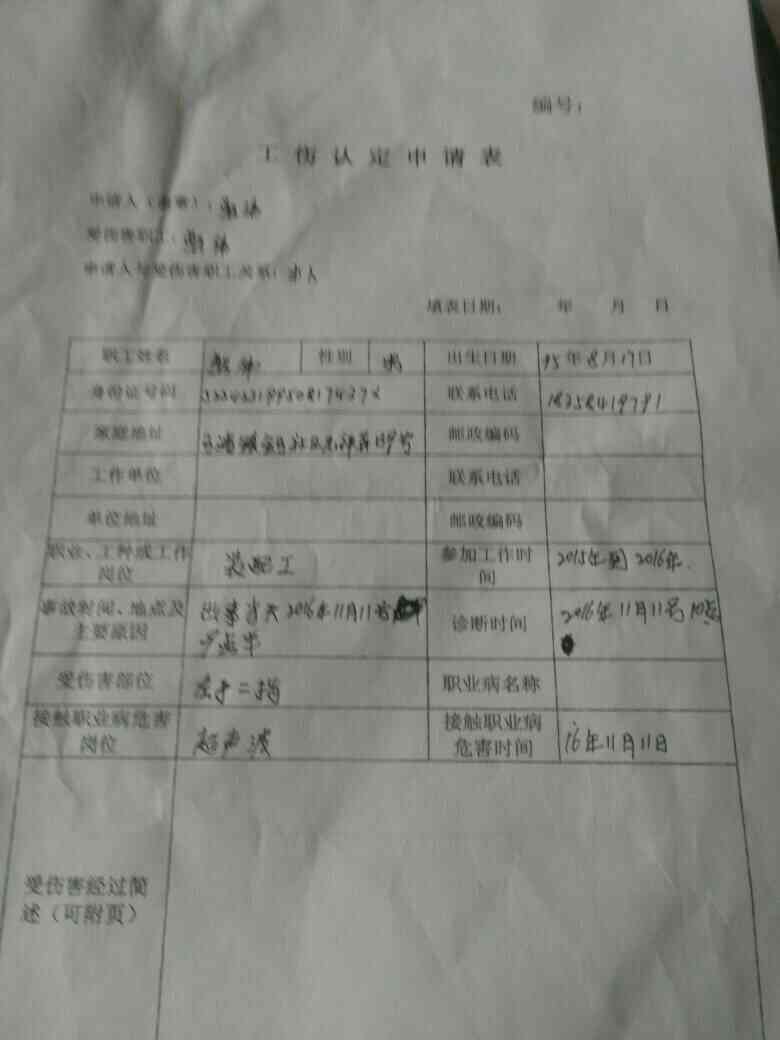 编号：
工伤认定申请表
申请人（盖章）：
受伤害职工：
申请人与受伤害职工关系：本人
填表日期： 年 月 日
职工姓名 性别 男 出生日期 95年8月17日
身份证号码 联系电话 18258419791
家庭地址 邮政编码
工作单位 联系电话
单位地址 邮政编码
职业、工种或工作岗位 装配工 参加工作时间 2015年到2016年.
事故时间、地点及主要原因 故事当天2016年11月11号 9点半 诊断时间 2016年11月11号10点
受伤害部位 左手二指 职业病名称
接触职业病危害岗位 超声波 接触职业病危害时间 16年11月11日
受伤害经过简述（可附页）